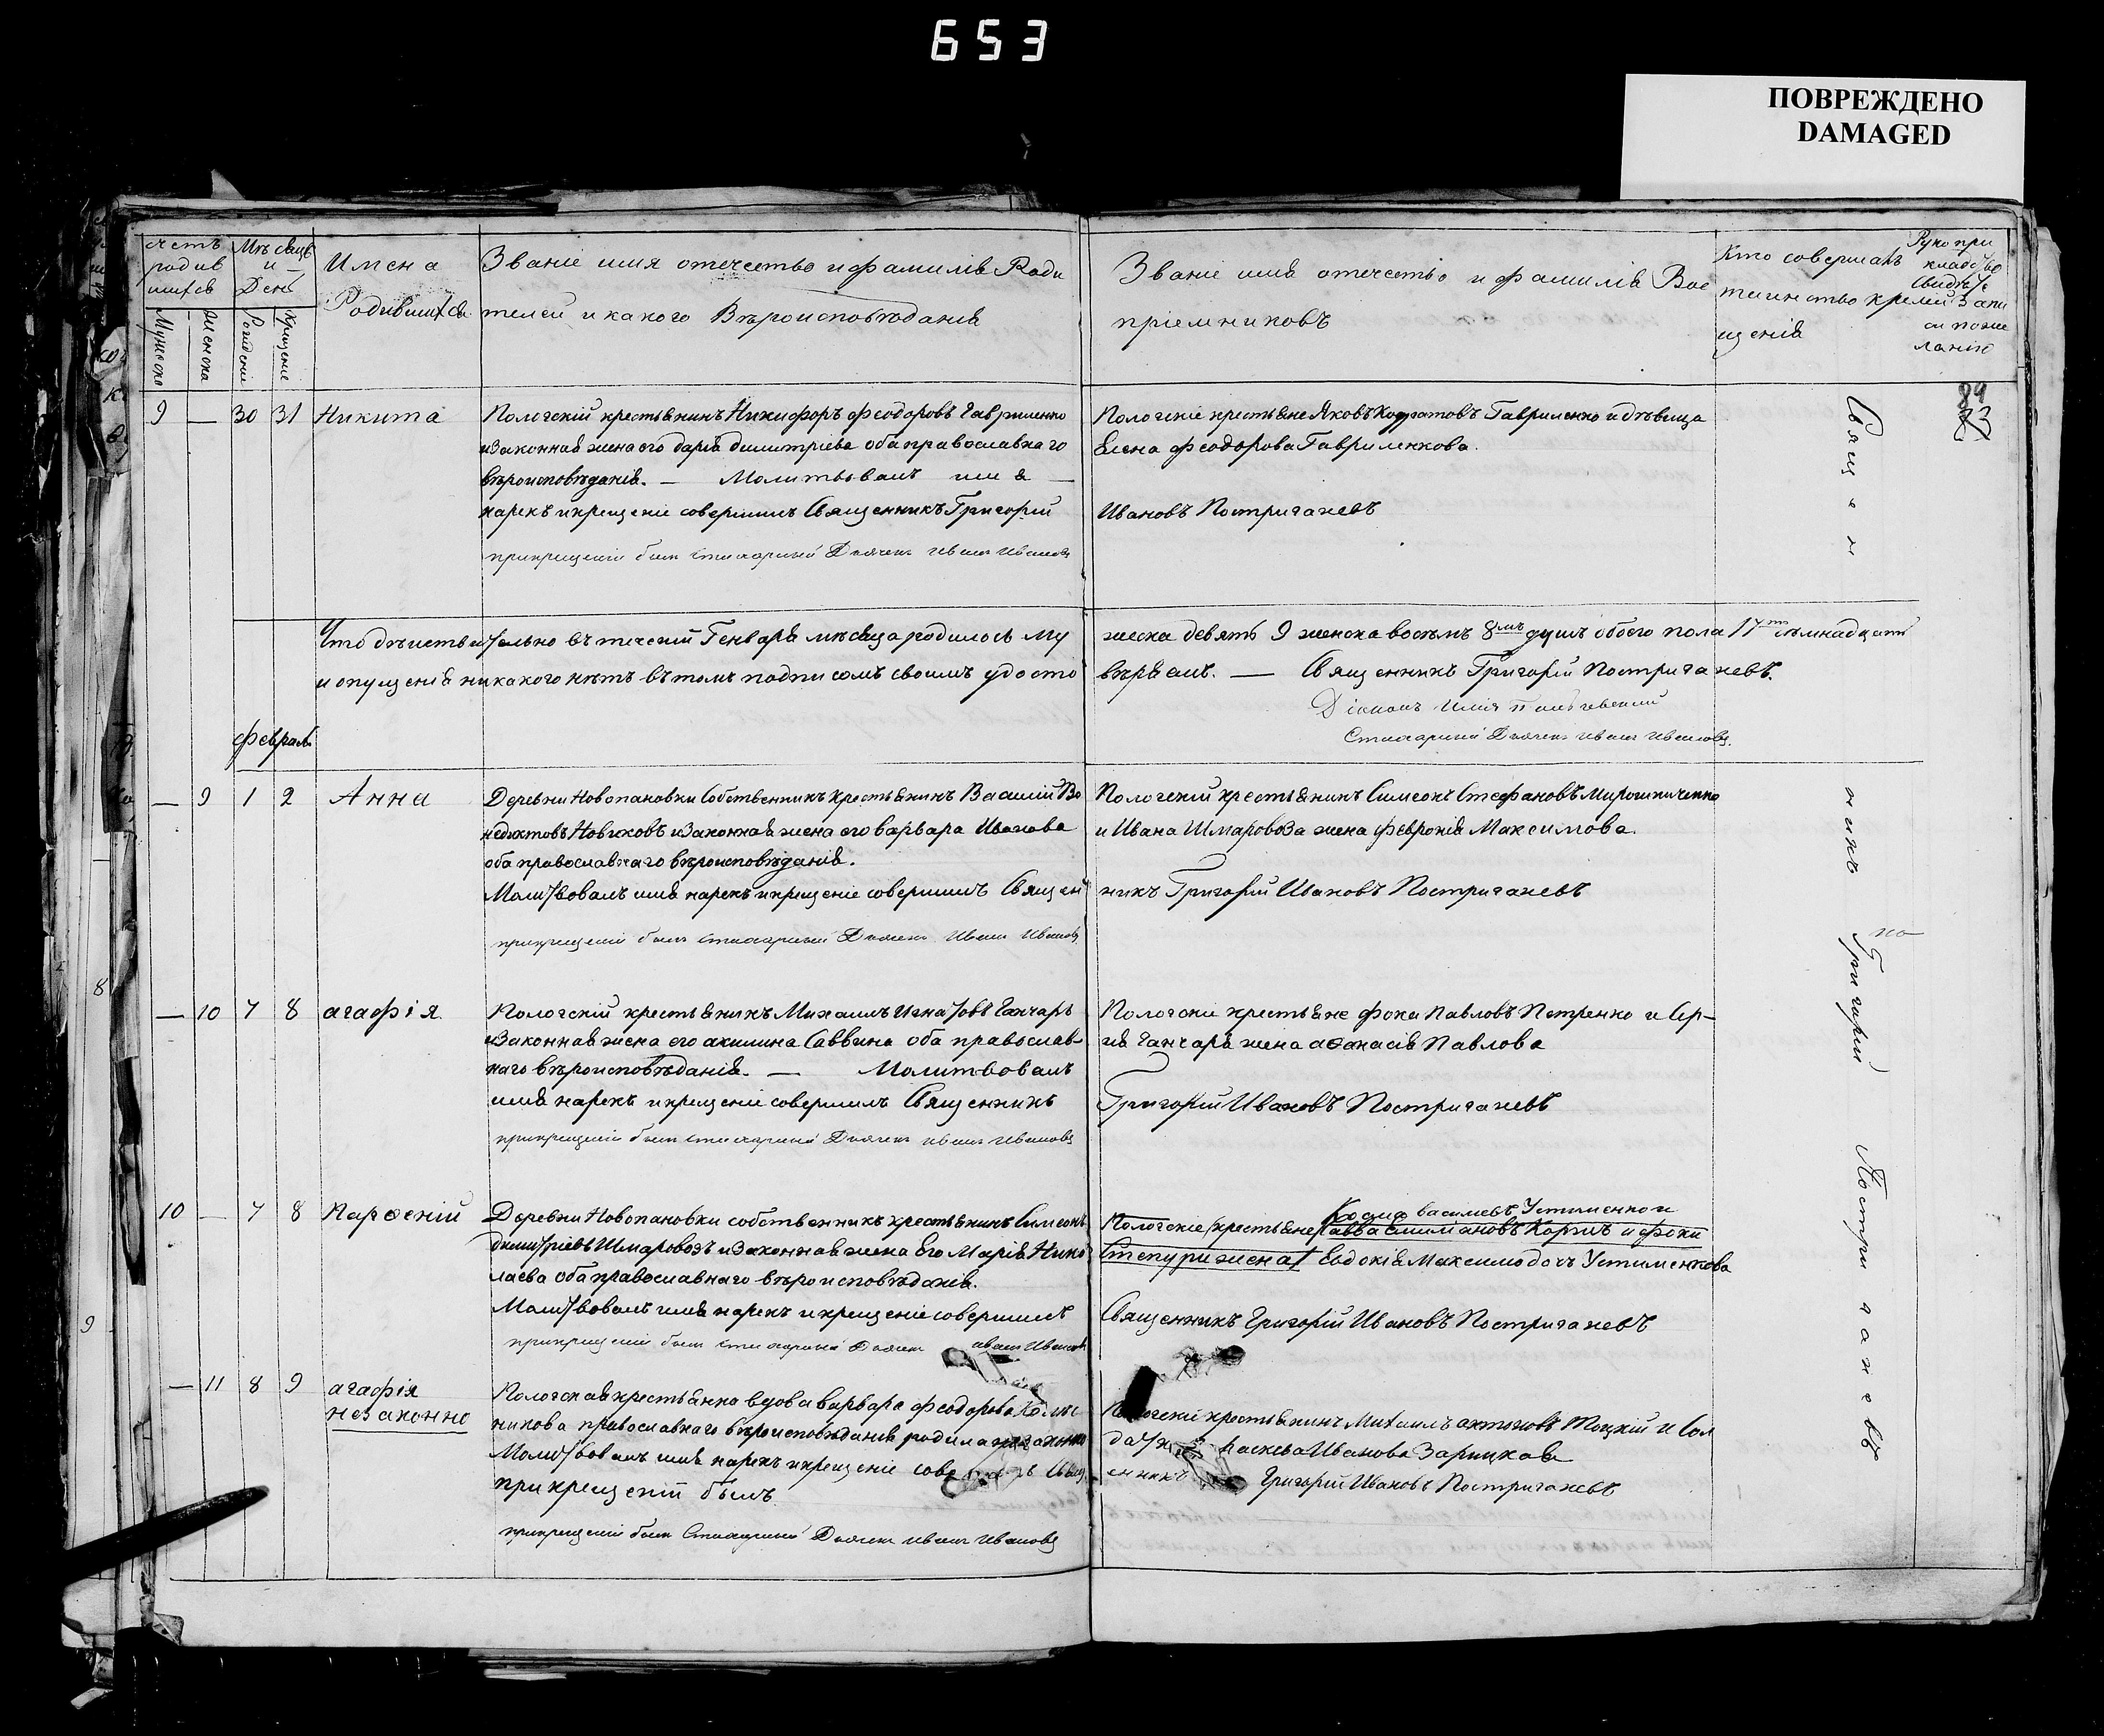 653
ПОВРЕЖДЕНО
DAMAGED
Счетъ родив шихся
Мѣсяцъ и День
Имена Родившихся
Званіе имя отечество и фамилія Роди
телей и какого Вѣроисповѣданія
Званіе имя отечество и фамилія Вос
пріемниковъ
Кто совершалъ
таинство крещ
щенія
Рукопри
кладство
свидѣте
запи
си поже
ланію
Мужеска
Женска
Рожденіе
Крещеніе
84
83
9 — 30 31 Никита
Пологскій крестьянинъ Никифоръ Феодоровъ Гавриленко
и законная жена его Дарія Димитріева оба православнаго
вѣроисповѣданія. — Молитвовалъ имя —
нарекъ и крещеніе совершилъ Священникъ Григорій
при крещеніи былъ Стихарный Дьячекъ Иванъ Ивановъ
Пологскіе крестьяне Яковъ Гавриленко и дѣвица
Елена Феодорова Гавриленкова.
Ивановъ Постригачевъ
Что дѣйствительно въ теченіи Генваря мѣсяца родилось му
жеска девять 9 женска восемъ 8мъ душъ обоего пола 17ть сѣмнадцать
и опущенія никакого нѣтъ въ томъ подписомъ своимъ удосто
вѣряемъ. — Священникъ Григорій Постригачевъ.
Діаконъ Илія
Стихарный Дьячекъ Иванъ Ивановъ.
Февраль
— 9 1 2 Анна
Деревни Новопановки Собственникъ крестьянинъ Василій Ве
недиктовъ Новиковъ и законная жена его Варвара Иванова
оба православнаго вѣроисповѣданія.
Молитвовалъ имя нарекъ и крещеніе совершилъ Священ
при крещеніи былъ Стихарный Дьячекъ Иванъ Ивановъ
Пологскій крестьянинъ Симеонъ Стефановъ Мирошниченко
и Ивана Шмаровоза жена Февронія Максимова.
никъ Григорій Ивановъ Постригачевъ
— 10 7 8 Агафія
Пологскій крестьянинъ Михаилъ Игнатовъ Ганчаръ
и законная жена его Акилина Саввина оба православ-
наго вѣроисповѣданія. — Молитвовалъ
имя нарекъ и крещеніе совершилъ Священникъ
при крещеніи былъ Стихарный Дьячекъ Иванъ Ивановъ
Пологскіе крестьяне Фока Павловъ Петренко и Сер-
гія Ганчаря жена Аѳанасія Павлова
Григорій Ивановъ Постригачевъ
10 — 7 8 Парѳеній
Деревни Новопановки собственникъ крестьянинъ Симеонъ
Димитріевъ Шмаровозъ и законная жена его Марія Нико
лаева оба православнаго вѣроисповѣданія.
Молитвовалъ имя нарекъ и крещеніе совершилъ
при крещеніи былъ Стихарный Дьячекъ Иванъ Ивановъ
Васильевъ Устименко и
Пологскіе крестьяне Савва и Фоки
жена Евдокія Максимо дочь Устименкова
Священникъ Григорій Ивановъ Постригачевъ
— 11 8 9 Агафія
незаконно
Пологская крестьянка вдова Варвара Феодорова
никова православнаго вѣроисповѣданія родила незаконно
Молитвовалъ имя нарекъ и крещеніе сове Свящ
при крещеніи былъ
при крещеніи былъ Стихарный Дьячекъ Иванъ Ивановъ
Пологскій крестьянинъ Михаилъ Антоновъ Тоцкій и Сол
датка Параскева Иванова Зарицкая
енникъ Григорій Ивановъ Постригачевъ
Священникъ Григорій Постригачевъ
по
8
9